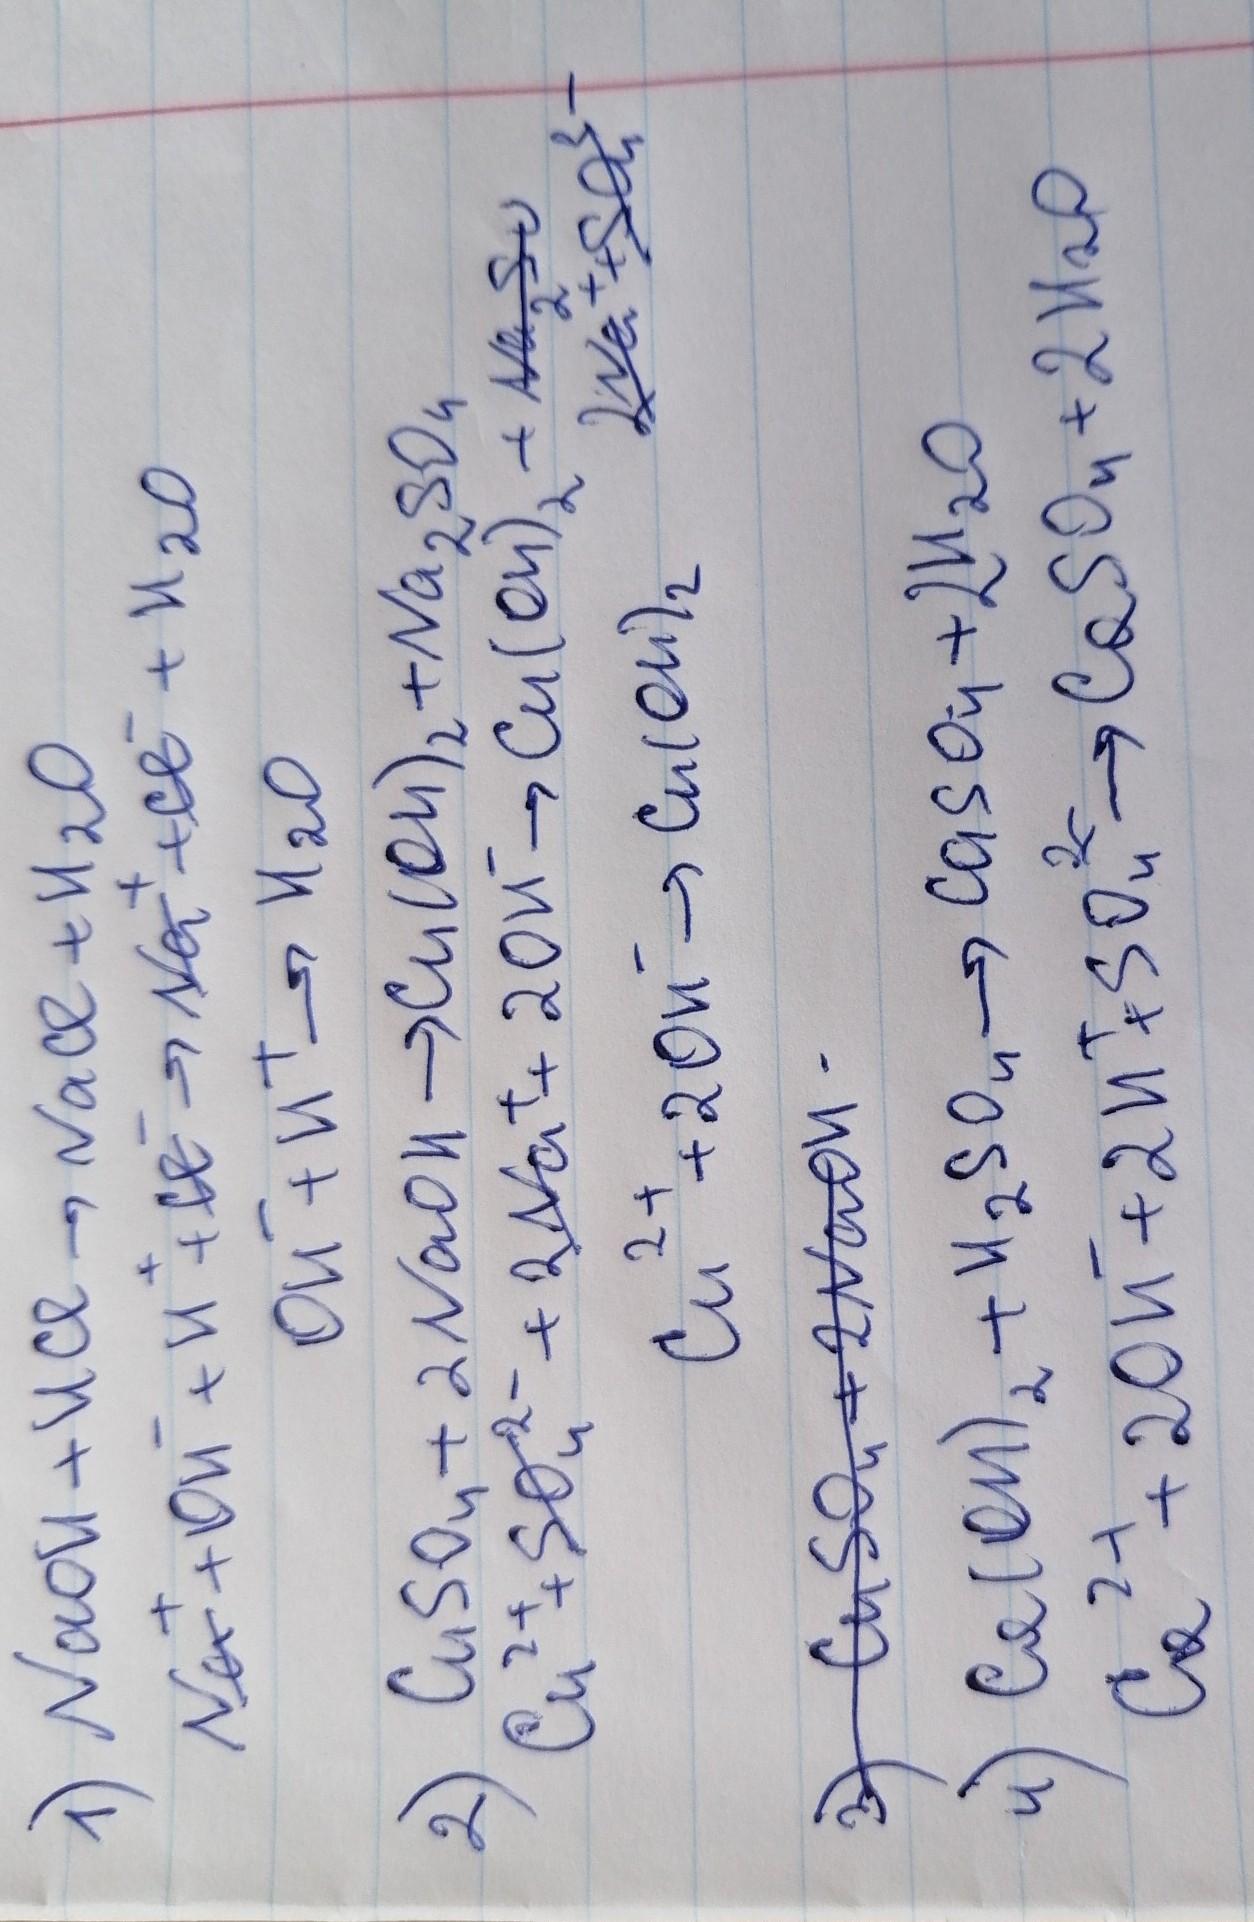 1) NaOH + HCl → NaCl + H₂O
Na⁺ + OH⁻ + H⁺ + Cl⁻ → Na⁺ + Cl⁻ + H₂O
OH⁻ + H⁺ → H₂O
2) CuSO₄ + 2NaOH → Cu(OH)₂ + Na₂SO₄
Cu²⁺ + SO₄²⁻ + 2Na⁺ + 2OH⁻ → Cu(OH)₂ + Na₂SO
2Na⁺ + SO₄²⁻
Cu²⁺ + 2OH⁻ → Cu(OH)₂
3) CuSO₄ + 2NaOH
4) Ca(OH)₂ + H₂SO₄ → CaSO₄ + 2H₂O
Ca²⁺ + 2OH⁻ + 2H⁺ + SO₄²⁻ → CaSO₄ + 2H₂O